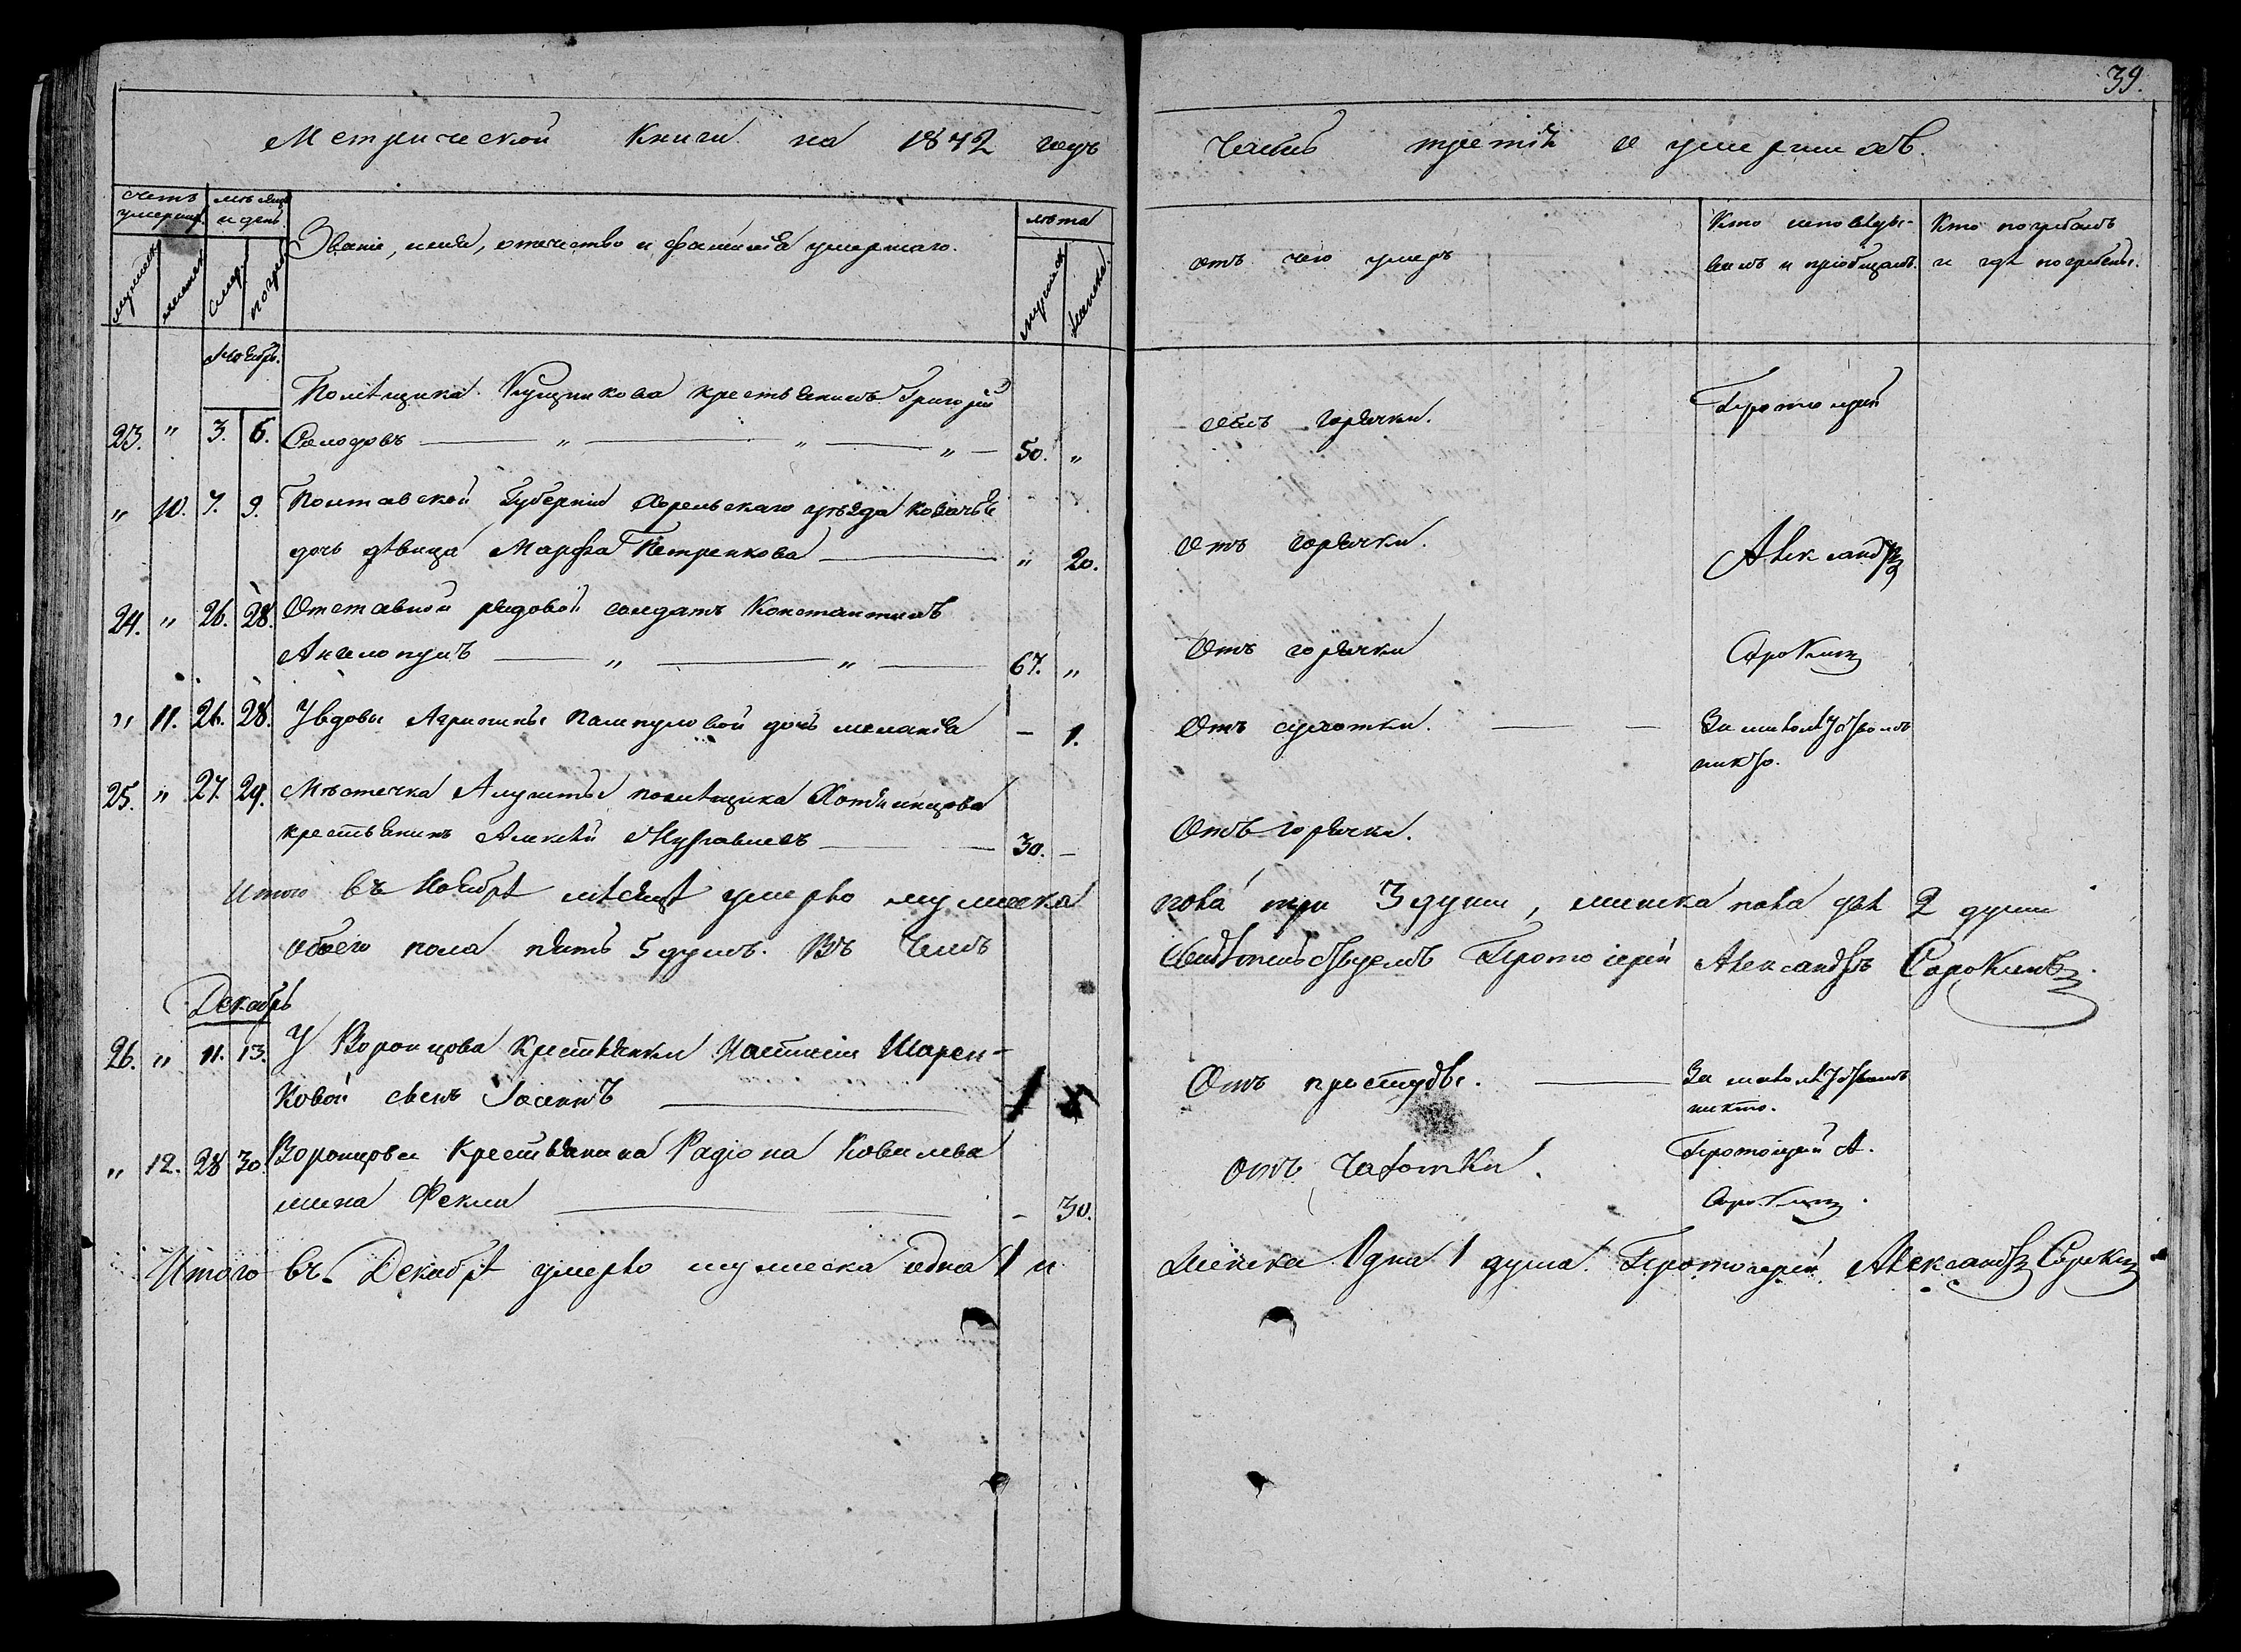 39.
Метрической Книги на 1842 годъ
Часть третія о умершихъ.
счетъ умерш.
мѣсяцъ и день
Званіе, имя, отечество и фамилія умершаго.
лѣта
мужеск
женска
смер
погр
мужеск
женска.
отъ чего умеръ
Кто исповѣды-
валъ и пріобщалъ.
Кто погребалъ
и гдѣ погребены.
Ноябрь.
Помѣщика крестьянинъ Григорій
23. " 3. 6. Солодовъ — " — " — " — 50. "
Отъ горячки.
Протоіерей
" 10. 7. 9. Полтавской Губерніи Хорольскаго уѣзда козачья
дочь дѣвица Марфа Петренкова — " 20.
Отъ горячки.
Александръ
24. " 26. 28. Отставной рядовой солдатъ Константинъ
Ангелопулъ — " — " — 67. "
Отъ горячки
Сорокинъ
" 11. 26. 28. У вдовы дочь меланія — 1.
Отъ сухотки. — —
За никто.
25. " 27. 29. Мѣстечка Алушты помѣщика
крестьянинъ Алексѣй — 30. –
Отъ горячки.
Итого въ Ноябрѣ мѣсяцѣ умерло мужеска
пола три 3 души, женска пола двѣ 2 души
обоего пола пять 5 душъ. Въ чемъ
свидѣтельствуемъ Протоіерей Александръ Сорокинъ.
Декабрь
26. " 11. 13. У Воронцова Крестьянки Настасіи Шарен-
ковой сынъ — 1
Отъ простуды. —
За никто.
" 12. 28 30. Воронцова Крестьянина Радіона Ковалева
жена Фекла — – 30.
отъ Чахотки.
Протоіерей А.
Сорокинъ.
Итого въ Декабрѣ умерло мужеска одна 1 и
женска Одна 1 душа. Протоіерей Александръ Сорокинъ